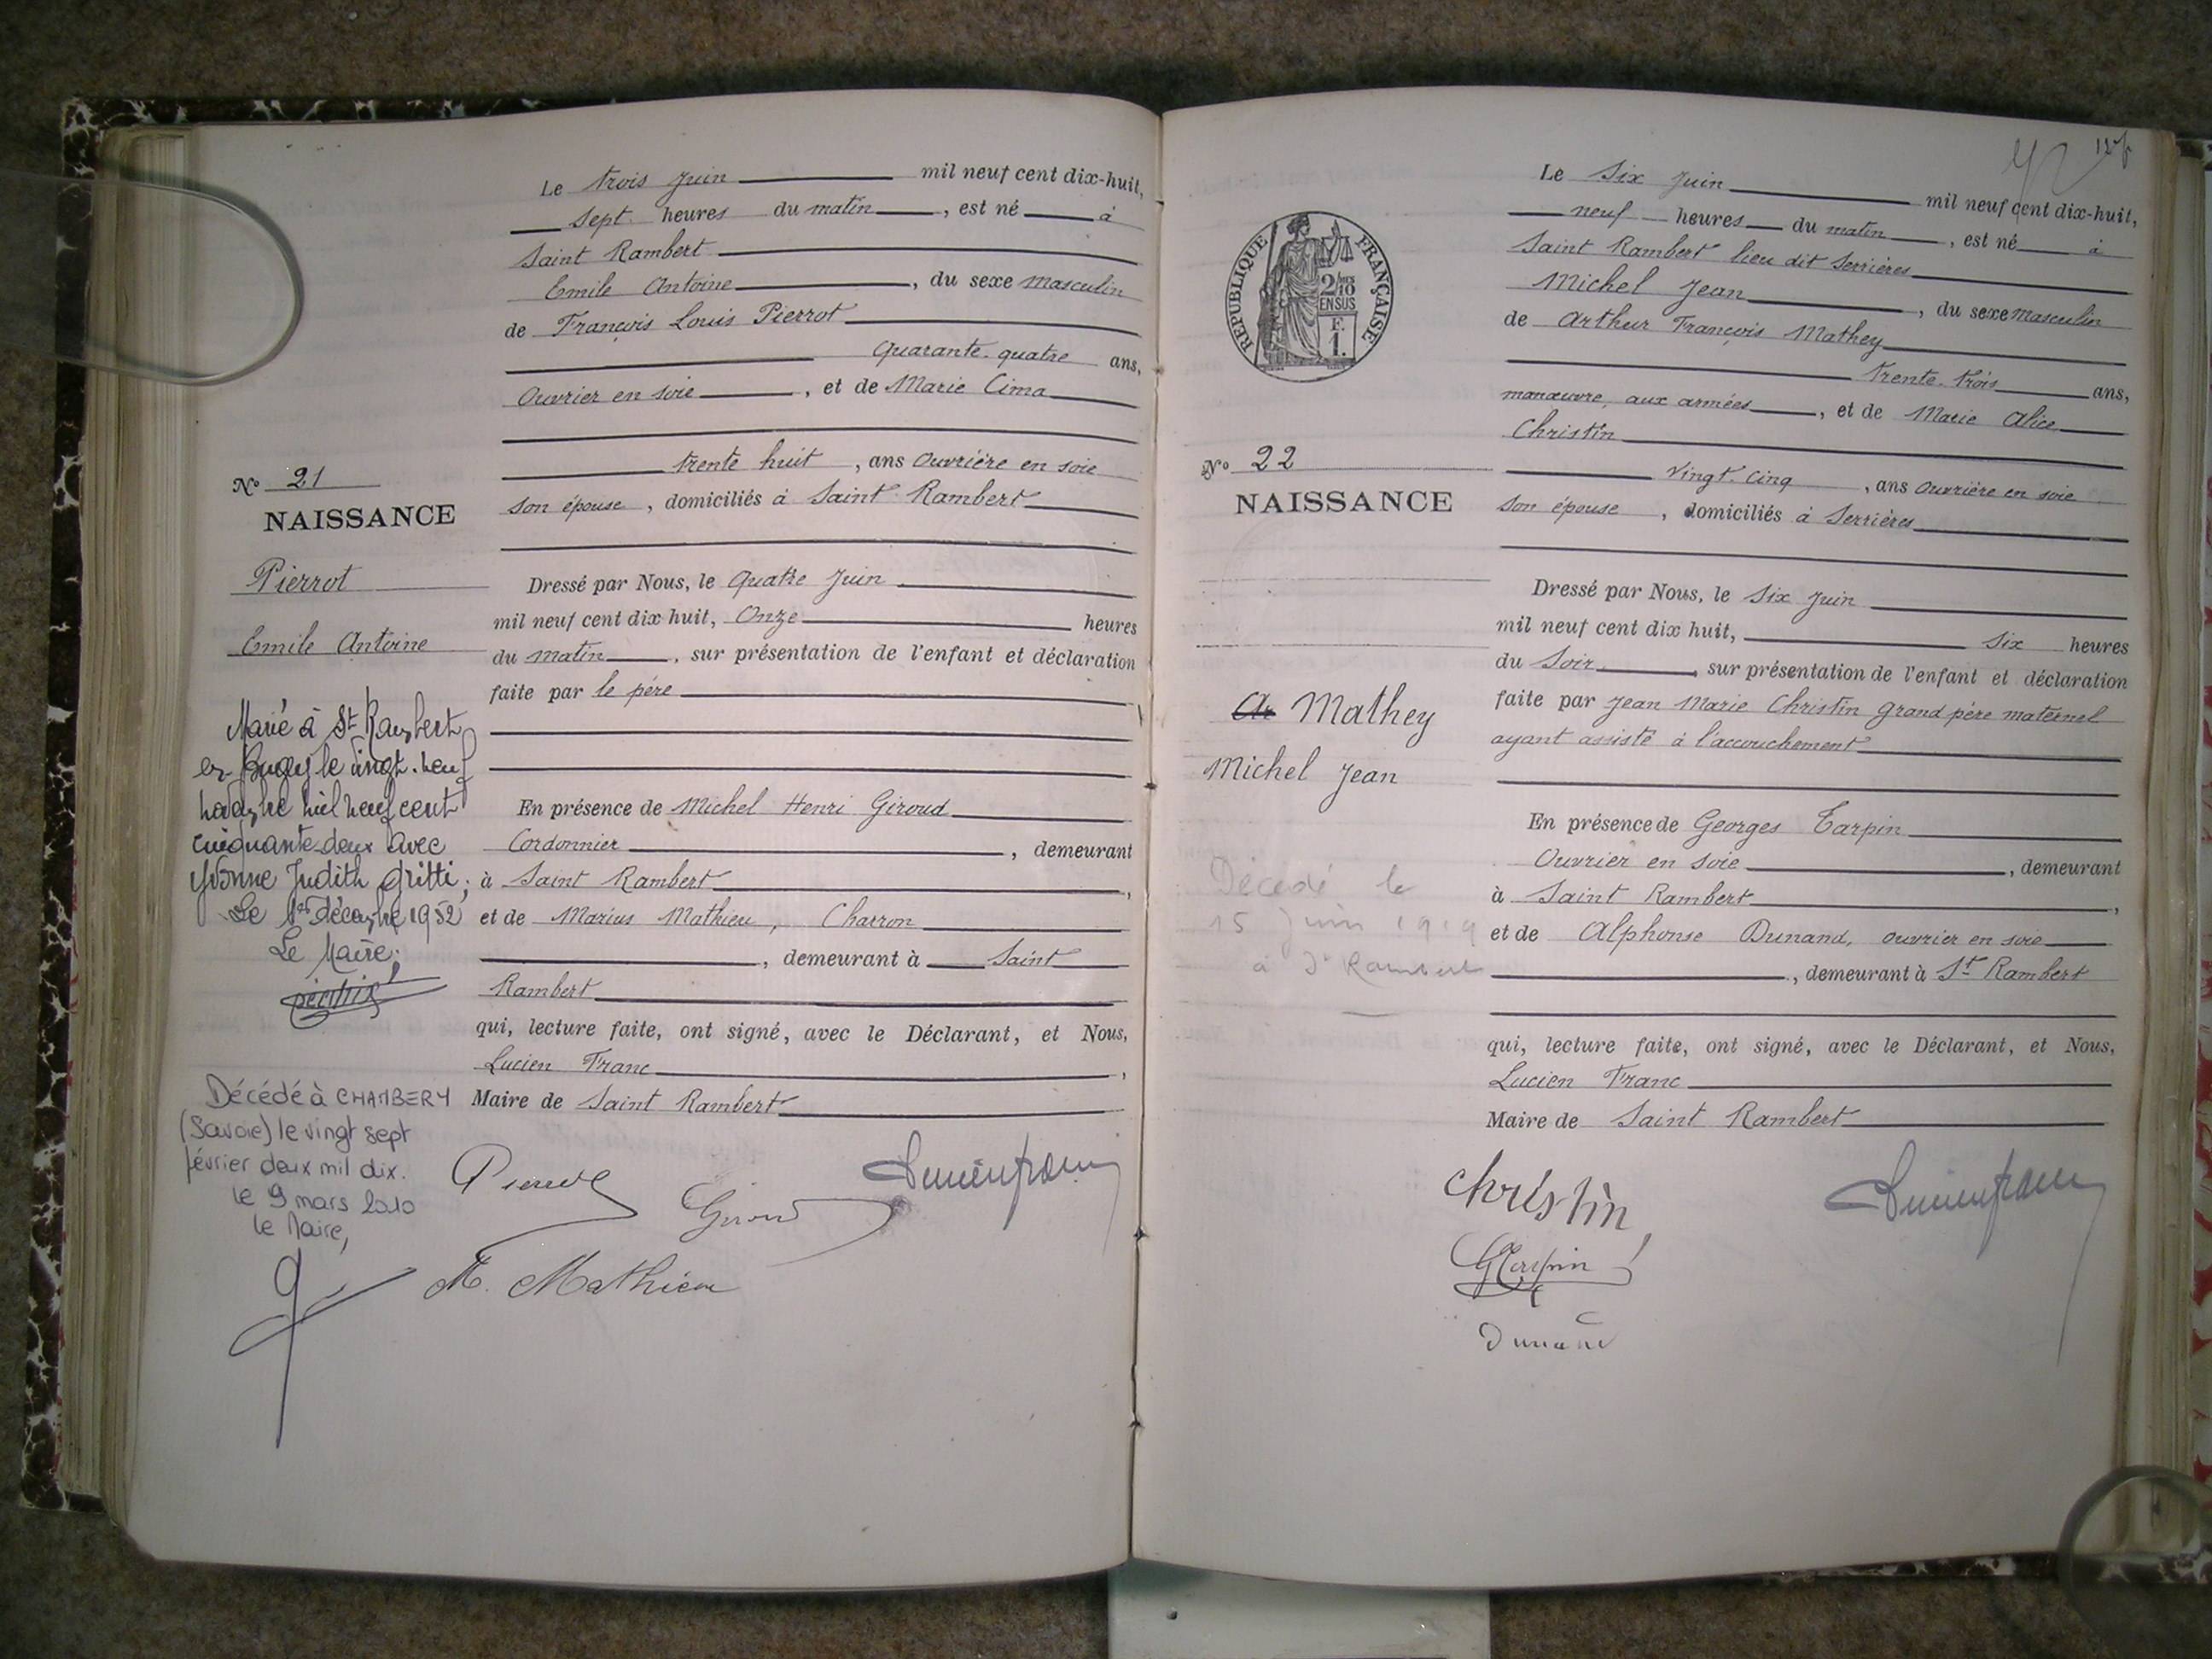 Le trois Juin mil neuf cent dix-huit,
sept heures du matin, est né à
Saint Rambert
Emile Antoine, du sexe masculin
de François Louis Pierrot
Quarante-quatre ans,
Ouvrier en soie, et de Marie Cima
trente huit, ans Ouvrière en soie
son épouse, domiciliés à Saint Rambert
Nº 21
NAISSANCE
Pierrot
Emile Antoine
Dressé par Nous, le Quatre Juin
mil neuf cent dix huit, Onze heures
du matin, sur présentation de l'enfant et déclaration
faite par le père
En présence de Michel Henri Giroud
Cordonnier, demeurant
à Saint Rambert,
et de Marius Mathieu, Charron
, demeurant à Saint
Rambert
qui, lecture faite, ont signé, avec le Déclarant, et Nous,
Lucien Franc,
Maire de Saint Rambert
Marié à St Rambert
en Bugey le vingt-neuf
novembre mil neuf cent
cinquante-deux avec
Yvonne Judith Gritti;
Le 1er décembre 1952
Le Maire;
Décédé à CHAMBERY
(Savoie) le vingt sept
février deux mil dix.
le 9 mars 2010
le Maire,
Pierrot
Giroud
Lucien franc
M. Mathieu
REPUBLIQUE FRANÇAISE
2/10
EN SUS
F.
1.
Le Six Juin mil neuf cent dix-huit,
neuf heures du matin, est né à
Saint Rambert lieu dit Serrières
Michel Jean, du sexe masculin
de Arthur François Mathey
trente-trois ans,
manœuvre, aux armées, et de Marie Alice
Christin
Vingt-cinq, ans Ouvrière en soie
son épouse, domiciliés à Serrières
Nº 22
NAISSANCE
Mathey
Michel Jean
Décédé le
15 Juin 1919
à St Rambert
Dressé par Nous, le Six Juin
mil neuf cent dix huit, Six heures
du Soir, sur présentation de l'enfant et déclaration
faite par Jean Marie Christin grand père maternel
ayant assisté à l'accouchement
En présence de Georges Tarpin
Ouvrier en soie, demeurant
à Saint Rambert,
et de Alphonse Dunand, ouvrier en soie
, demeurant à St Rambert
qui, lecture faite, ont signé, avec le Déclarant, et Nous,
Lucien Franc
Maire de Saint Rambert
Christin
Lucien franc
G Tarpin
Dunand